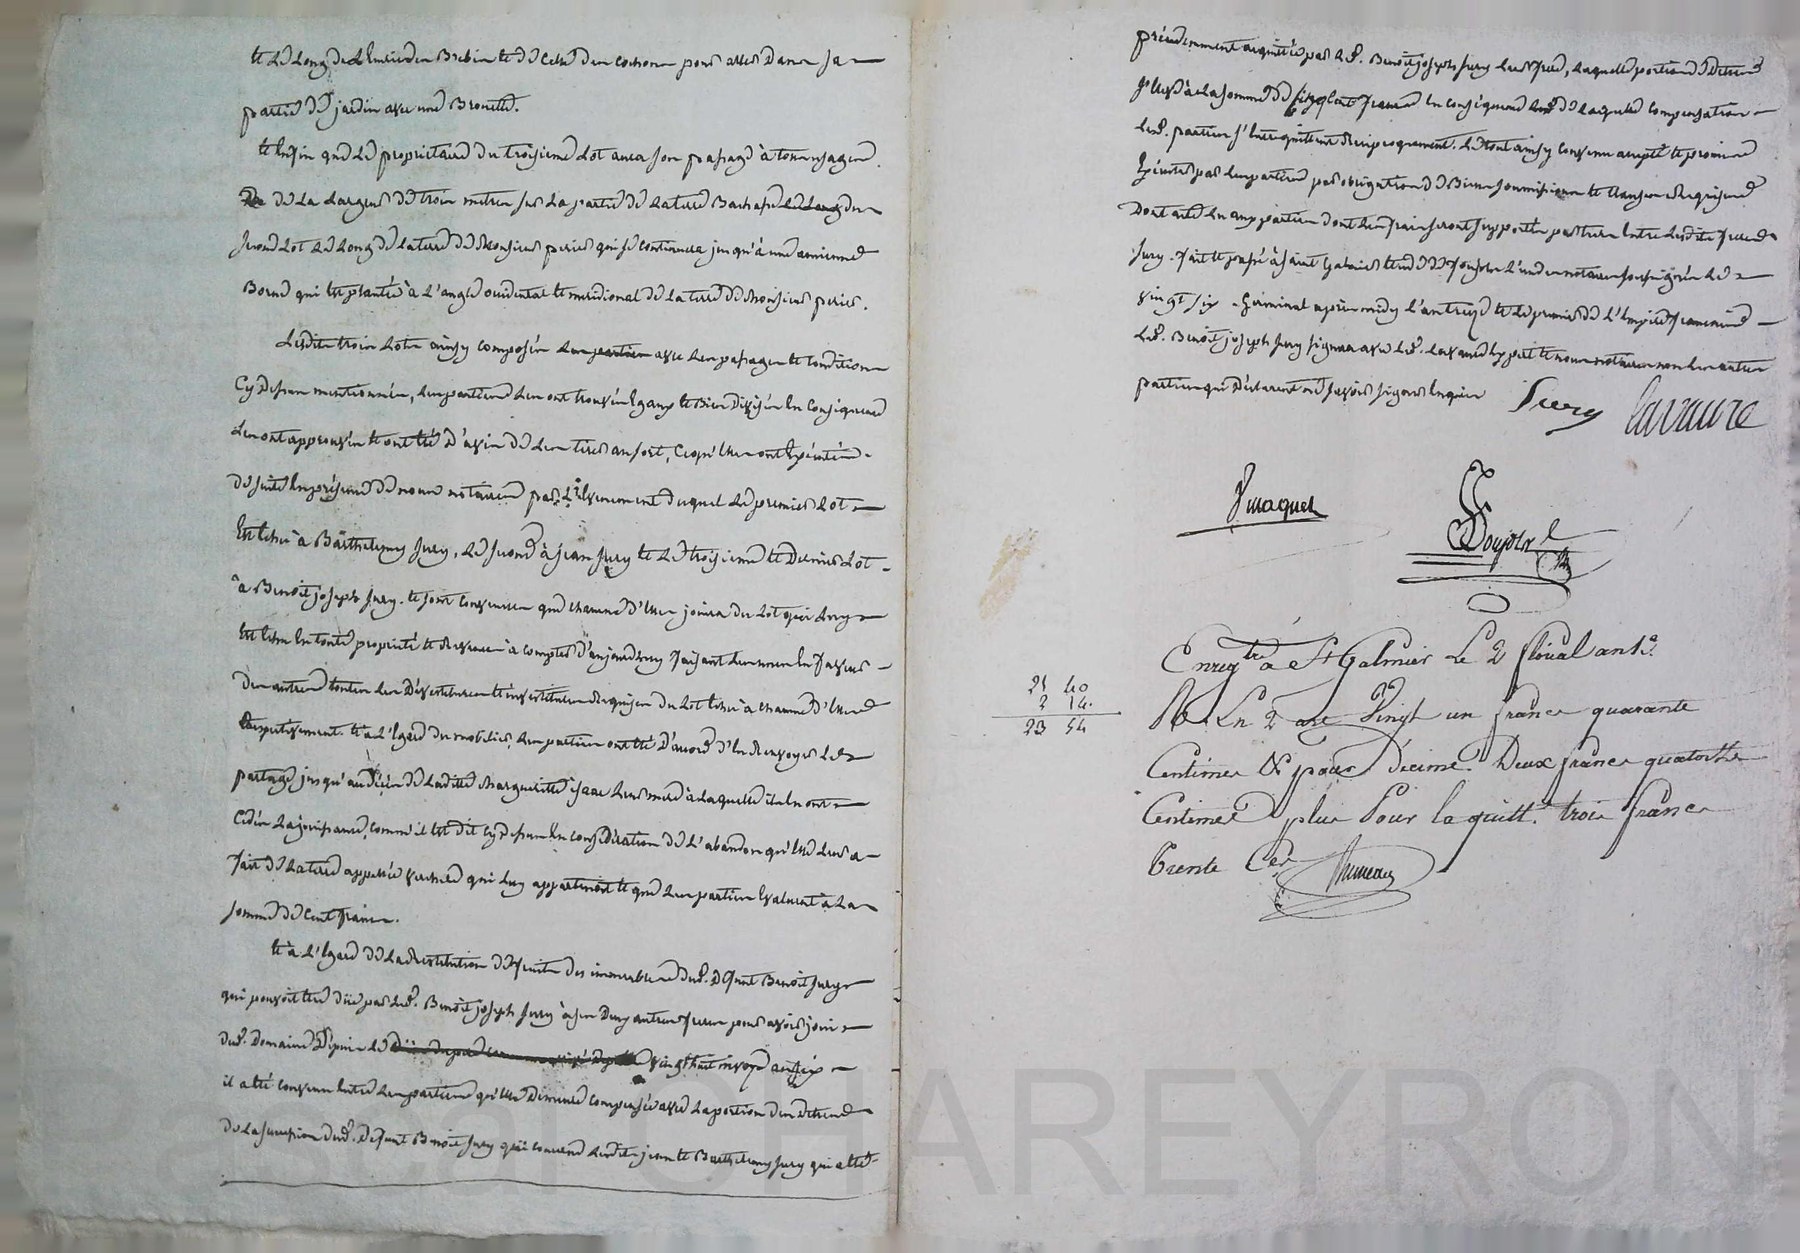 et le long de l'écurie des Brebis et de celle des cochons pour aller dans sa
partie de jardin avec une Brouette.
et enfin que le propriétaire du troisieme lot aura son passage à tous usages
de la largeur de trois metres sur la partie de la terre du
second lot le long de la terre de Monsieur perier qui se continuera jusqu'à une ancienne
Borne qui est plantée à l'angle occidental et meridional de la terre de Monsieur perier.
Lesdits trois lots ainsy composés avec les passages et conditions
cy dessus mentionnés, les parties les ont trouvés egaux et Bien divisés en consequence
les ont approuvés et ont été d'avis de les tirer au sort, ce qu'elles ont exécuté
de suite en présence de nous notaires par l'evenement duquel le premier lot
est echu à Barthelemy Jury, le second à jean Jury et le troisieme et dernier lot
à Benoit joseph Jury. et sont convenus que chacune d'elles jouira du lot qui luy
est echu en toute propriété et revenus à compter d'aujourdhuy faisant les unes en faveur
des autres toutes les devestitures et investitures requises du lot echu à chacune d'elles
respectivement. et à l'égard du mobilier, les parties ont été d'accord d'en renvoyer le
partage jusqu'au décès de ladite Marguerite isaac leur mere à laquelle ils en ont
cédés la jouissance, comme il est dit cy dessus en considération de l'abandon qu'elle leur a
fait de la terre appellée qui luy appartenoit et que les parties evaluent à la
somme de cent francs.
et à l'egard de la restitution de fruits des immeubles dud. defunt Benoit Jury
qui pouvoit etre düe par led. Benoit joseph Jury à ses deux autres freres pour avoir joui
dud. domaine depuis le vingt huit nivose an six
il a été convenu entre les parties qu'elle demeure compensée avec la portion des dettes
de la succession dud. defunt Benoit Jury qui concerne lesdits jean et Barthelemy Jury qui a été
précédemment acquittée par led. Benoit joseph Jury leur frere, laquelle portion de dettes
s'eleve à la somme de francs en consequence de laquelle compensation
lesd. parties s'entrequittent reciproquement. Le tout ainsy convenu accepté et promis
exécuter par les parties par obligation de Biens soumissions et clauses requises
Dont acte aux parties dont les frais seront supportés par tiers entre lesdits freres
Jury. fait et passé à saint Galmier etude de l'un des notaires soussignés le
vingt six Germinal après midy l'an treize et le premier de l'Empire francais
led. Benoit joseph Jury signera avec led. Lavaure et nous notaires non les autres
parties qui ont déclaré ne savoir signer enquis
Jury lavaure
Enregtré à St Galmier Le 2 floréal an 13.
21 40
2 14.
23 54
Vingt un francs quarante
Centimes & pour décime. Deux francs quatorze
Centimes plus Pour la quitt. trois francs
Trente Ces
CHAREYRON